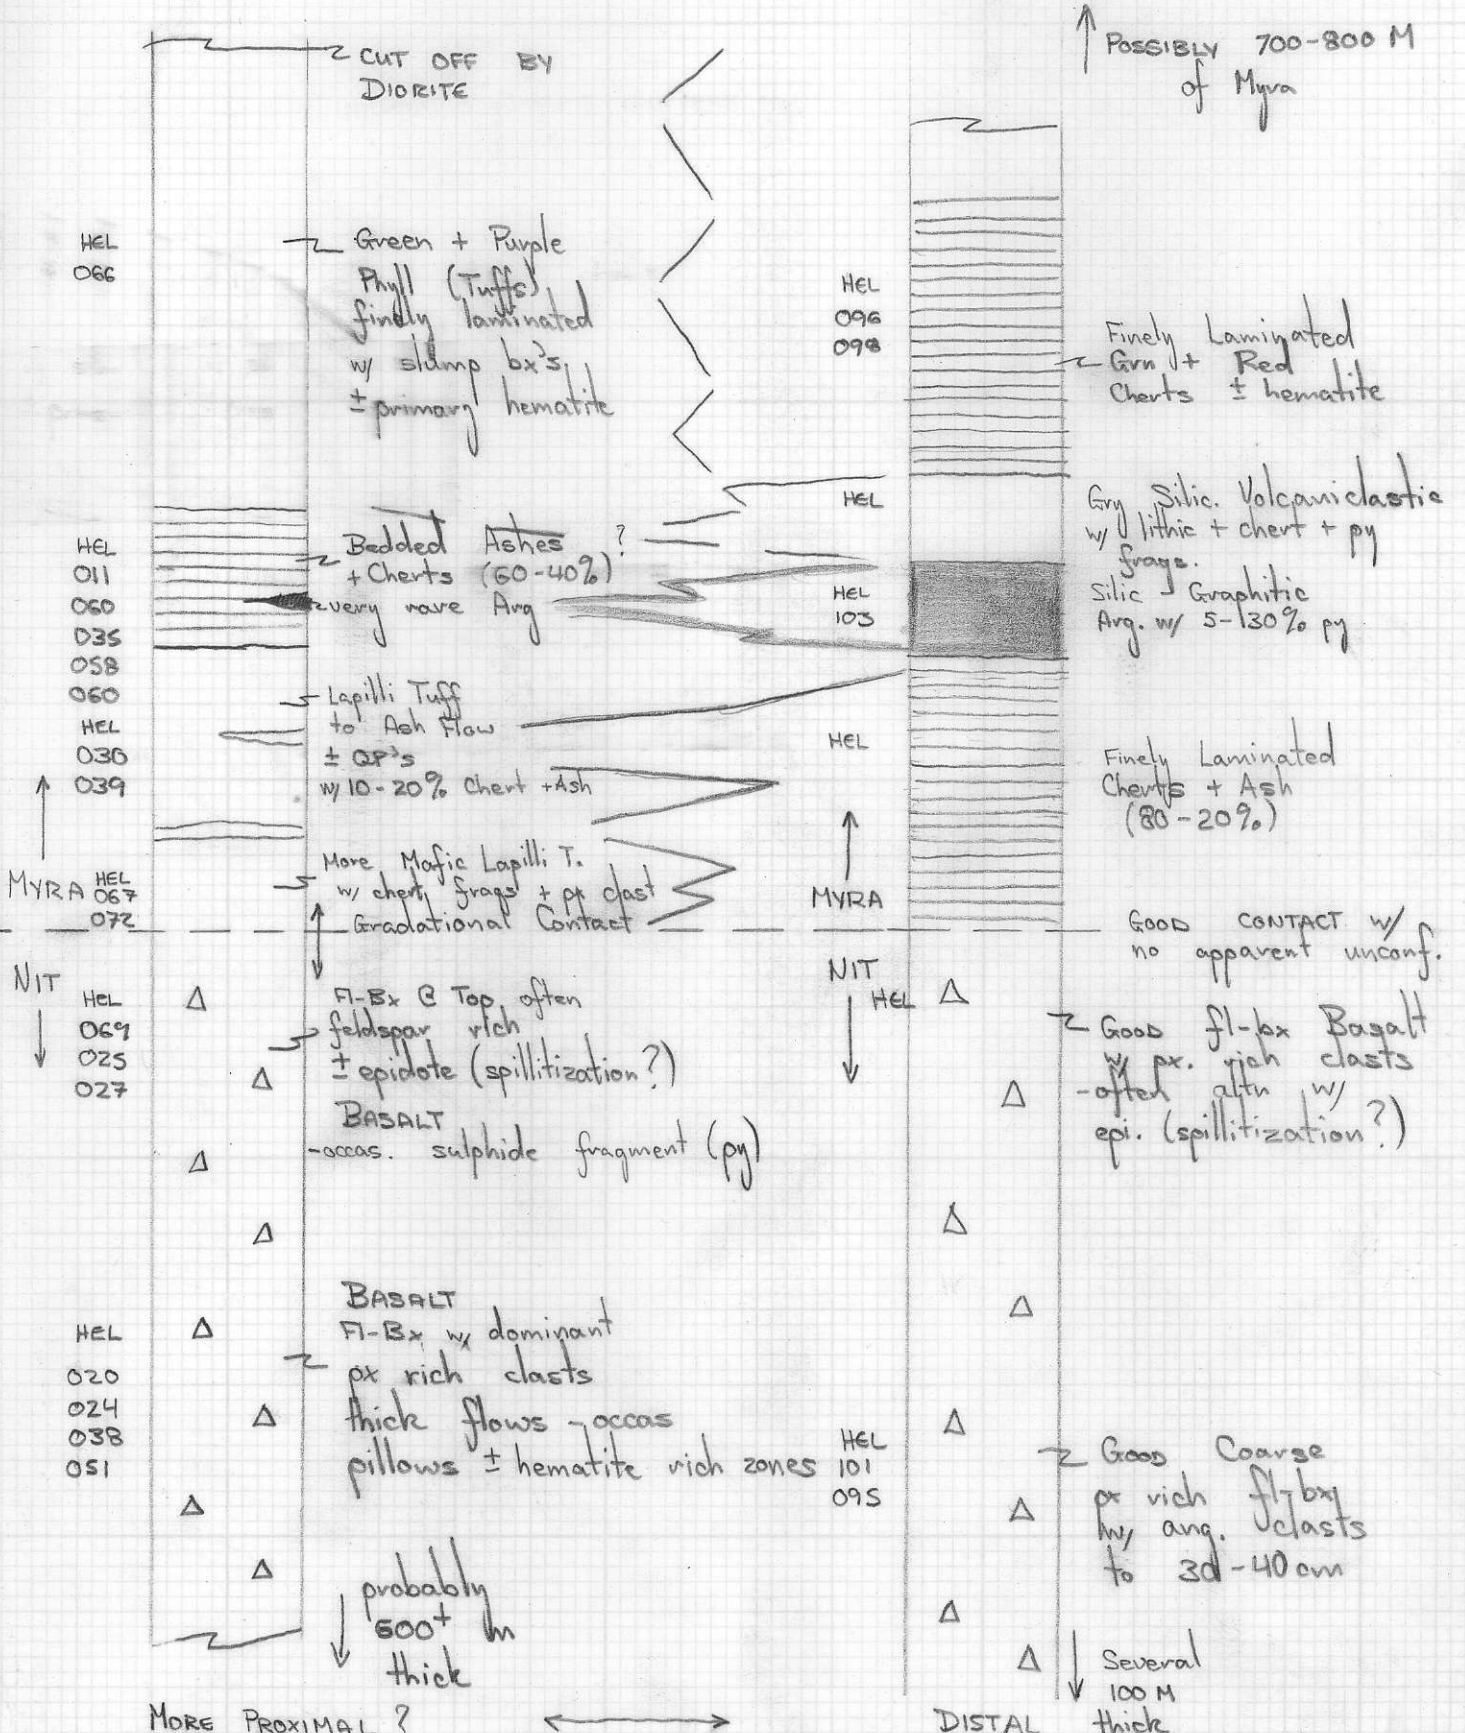 CUT OFF BY
DIORITE
HEL
066
Green + Purple
Phyll (Tuffs)
finely laminated
w/ slump bx's
± primary hematite
HEL
011
060
035
058
060
HEL
030
039
Bedded Ashes ?
+ Cherts (60-40%)
very rare Arg
Lapilli Tuff
to Ash Flow
± QP's
w/ 10-20% Chert + Ash
MYRA
HEL
067
072
More Mafic Lapilli T.
w/ chert frags + px clast
Gradational Contact
NIT
HEL
069
025
027
Fl-Bx @ Top often
feldspar rich
± epidote (spillitization?)
BASALT
-occas. sulphide fragment (py)
HEL
020
024
038
051
BASALT
Fl-Bx w/ dominant
px rich clasts
thick flows - occas
pillows ± hematite rich zones
probably
600+ m
thick
MORE PROXIMAL ?
POSSIBLY 700-800 M
of Myra
HEL
096
098
Finely Laminated
Grn + Red
Cherts ± hematite
HEL
Gry Silic. Volcaniclastic
w/ lithic + chert + py
frags.
HEL
103
Silic - Graphitic
Arg. w/ 5-130% py
HEL
Finely Laminated
Cherts + Ash
(80-20%)
MYRA
GOOD CONTACT w/
no apparent unconf.
NIT
HEL
GOOD fl-bx Basalt
w/ px. rich clasts
-often altn w/
epi. (spillitization?)
HEL
101
095
GOOD Coarse
px rich fl-bx
w/ ang. clasts
to 30-40 cm
Several
100 M
thick
DISTAL